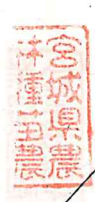 宮城県農
林種苗農